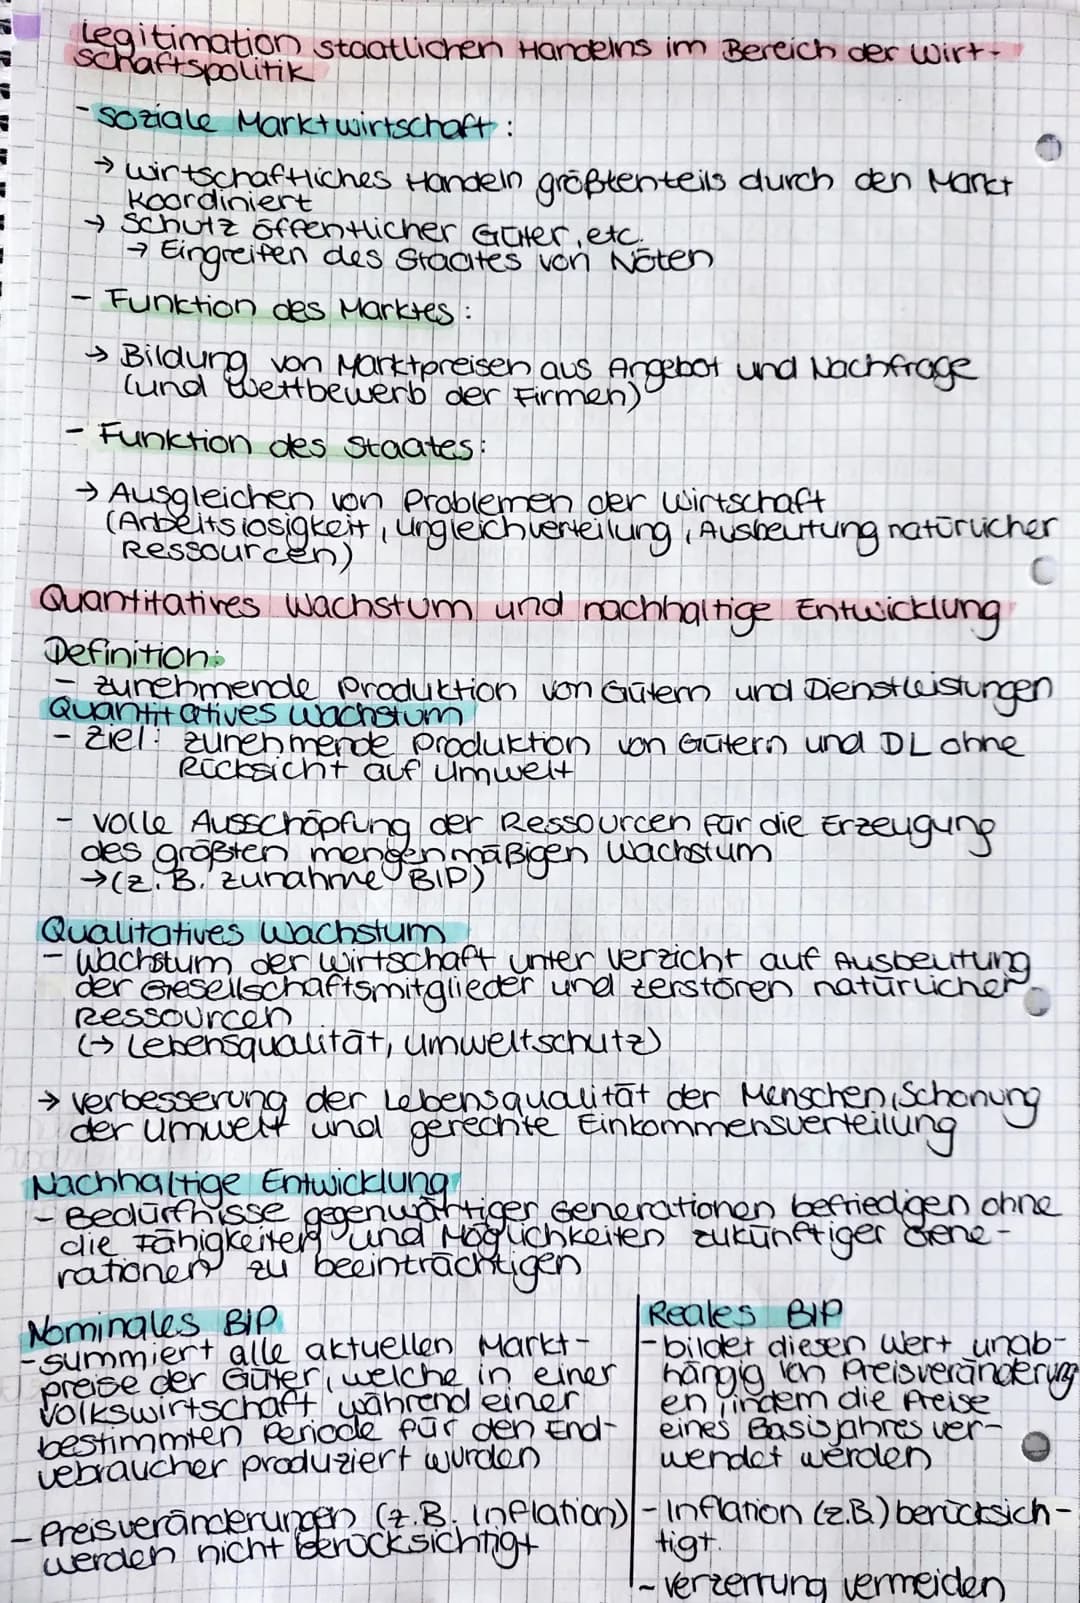 Legitimation staatlichen Handelns im Bereich der Wirt-
schaftspolitik
- Soziale Marktwirtschaft:
→ wirtschaftliches Handeln größtenteils durch den Markt
koordiniert
→ Schutz öffentlicher Güter, etc.
→ Eingreifen des Staates von Nöten
- Funktion des Marktes:
→ Bildung von Marktpreisen aus Angebot und Nachfrage
(und Wettbewerb der Firmen)
- Funktion des Staates:
→ Ausgleichen von Problemen der Wirtschaft
(Arbeitslosigkeit, Ungleichverteilung, Ausbeutung natürlicher
Ressourcen)
Quantitatives Wachstum und nachhaltige Entwicklung
Definition:
- zunehmende Produktion von Gütern und Dienstleistungen
Quantitatives Wachstum
- Ziel: zunehmende Produktion von Gütern und DL ohne
Rücksicht auf Umwelt
- volle Ausschöpfung der Ressourcen für die Erzeugung
des größten mengenmäßigen Wachstum
→ (z.B. Zunahme BIP)
Qualitatives Wachstum
- Wachstum der Wirtschaft unter Verzicht auf Ausbeutung
der Gesellschaftsmitglieder und zerstören natürlicher
Ressourcen
(→ Lebensqualität, Umweltschutz)
→ Verbesserung der Lebensqualität der Menschen, Schonung
der Umwelt und gerechte Einkommensverteilung
Nachhaltige Entwicklung
- Bedürfnisse gegenwärtiger Generationen befriedigen ohne
die Fähigkeiten und Möglichkeiten zukünftiger Gene-
rationen zu beeinträchtigen
Nominales BIP
- summiert alle aktuellen Markt-
preise der Güter, welche in einer
Volkswirtschaft während einer
bestimmten Periode für den End-
vebraucher produziert wurden
- Preisveränderungen (z.B. Inflation)
werden nicht berücksichtigt
Reales BIP
- bildet diesen Wert unab-
hängig von Preisveränderung
en, indem die Preise
eines Basisjahres ver-
wendet werden
- Inflation (z.B.) berücksich-
tigt.
- Verzerrung vermeiden